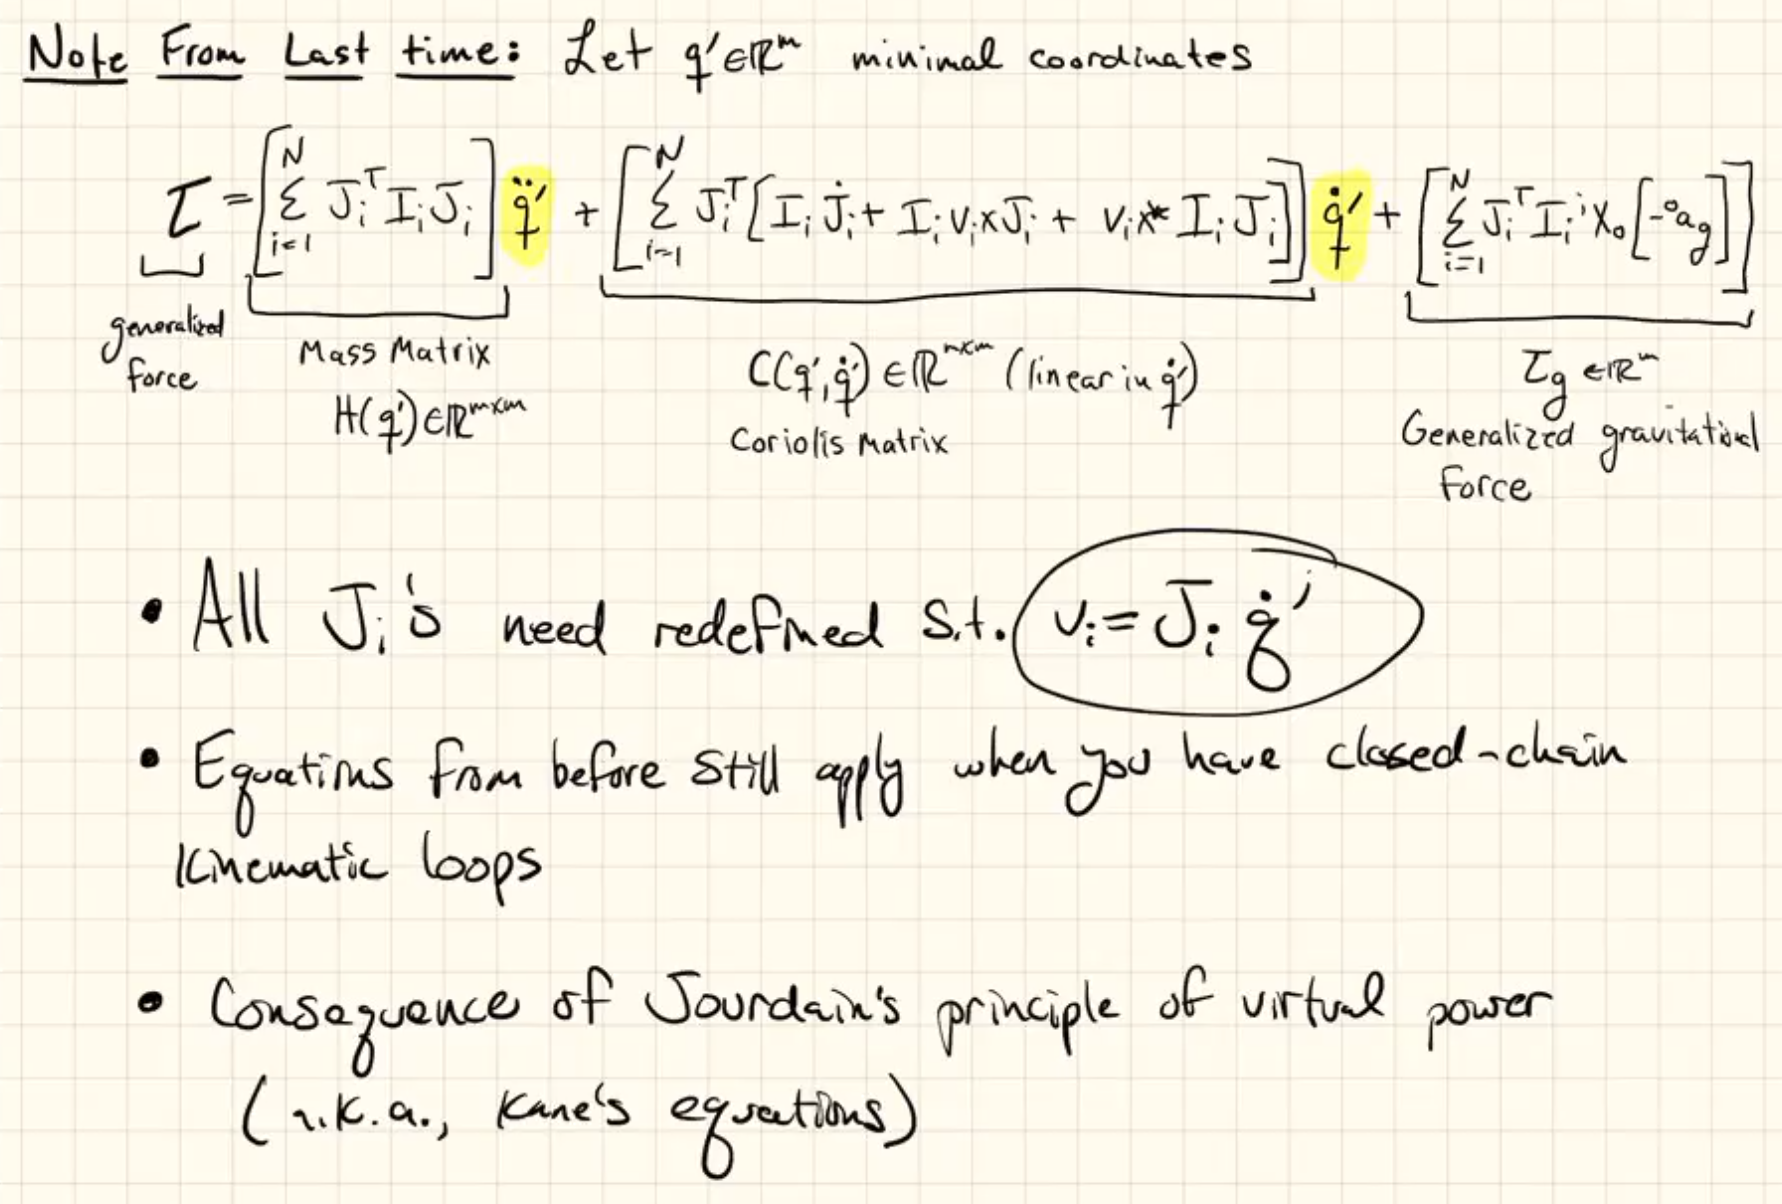 Note From Last time: Let q' ∈ ℝ^m minimal coordinates
τ = [∑_{i=1}^{N} J_i^T I_i J_i] q̈' + [∑_{i=1}^{N} J_i^T [I_i J̇_i + I_i v_i × J_i + v_i ×* I_i J_i]] q̇' + [∑_{i=1}^{N} J_i^T I_i ^iX_0 [-^0a_g]]
generalized force
Mass Matrix
H(q') ∈ ℝ^{m×m}
C(q', q̇') ∈ ℝ^{m×m} (linear in q̇')
Coriolis Matrix
τ_g ∈ ℝ^m
Generalized gravitational
Force
• All J_i's need redefined s.t. v_i = J_i q̇'
• Equations from before still apply when you have closed-chain
Kinematic loops
• Consequence of Jourdain's principle of virtual power
(a.k.a., Kane's equations)